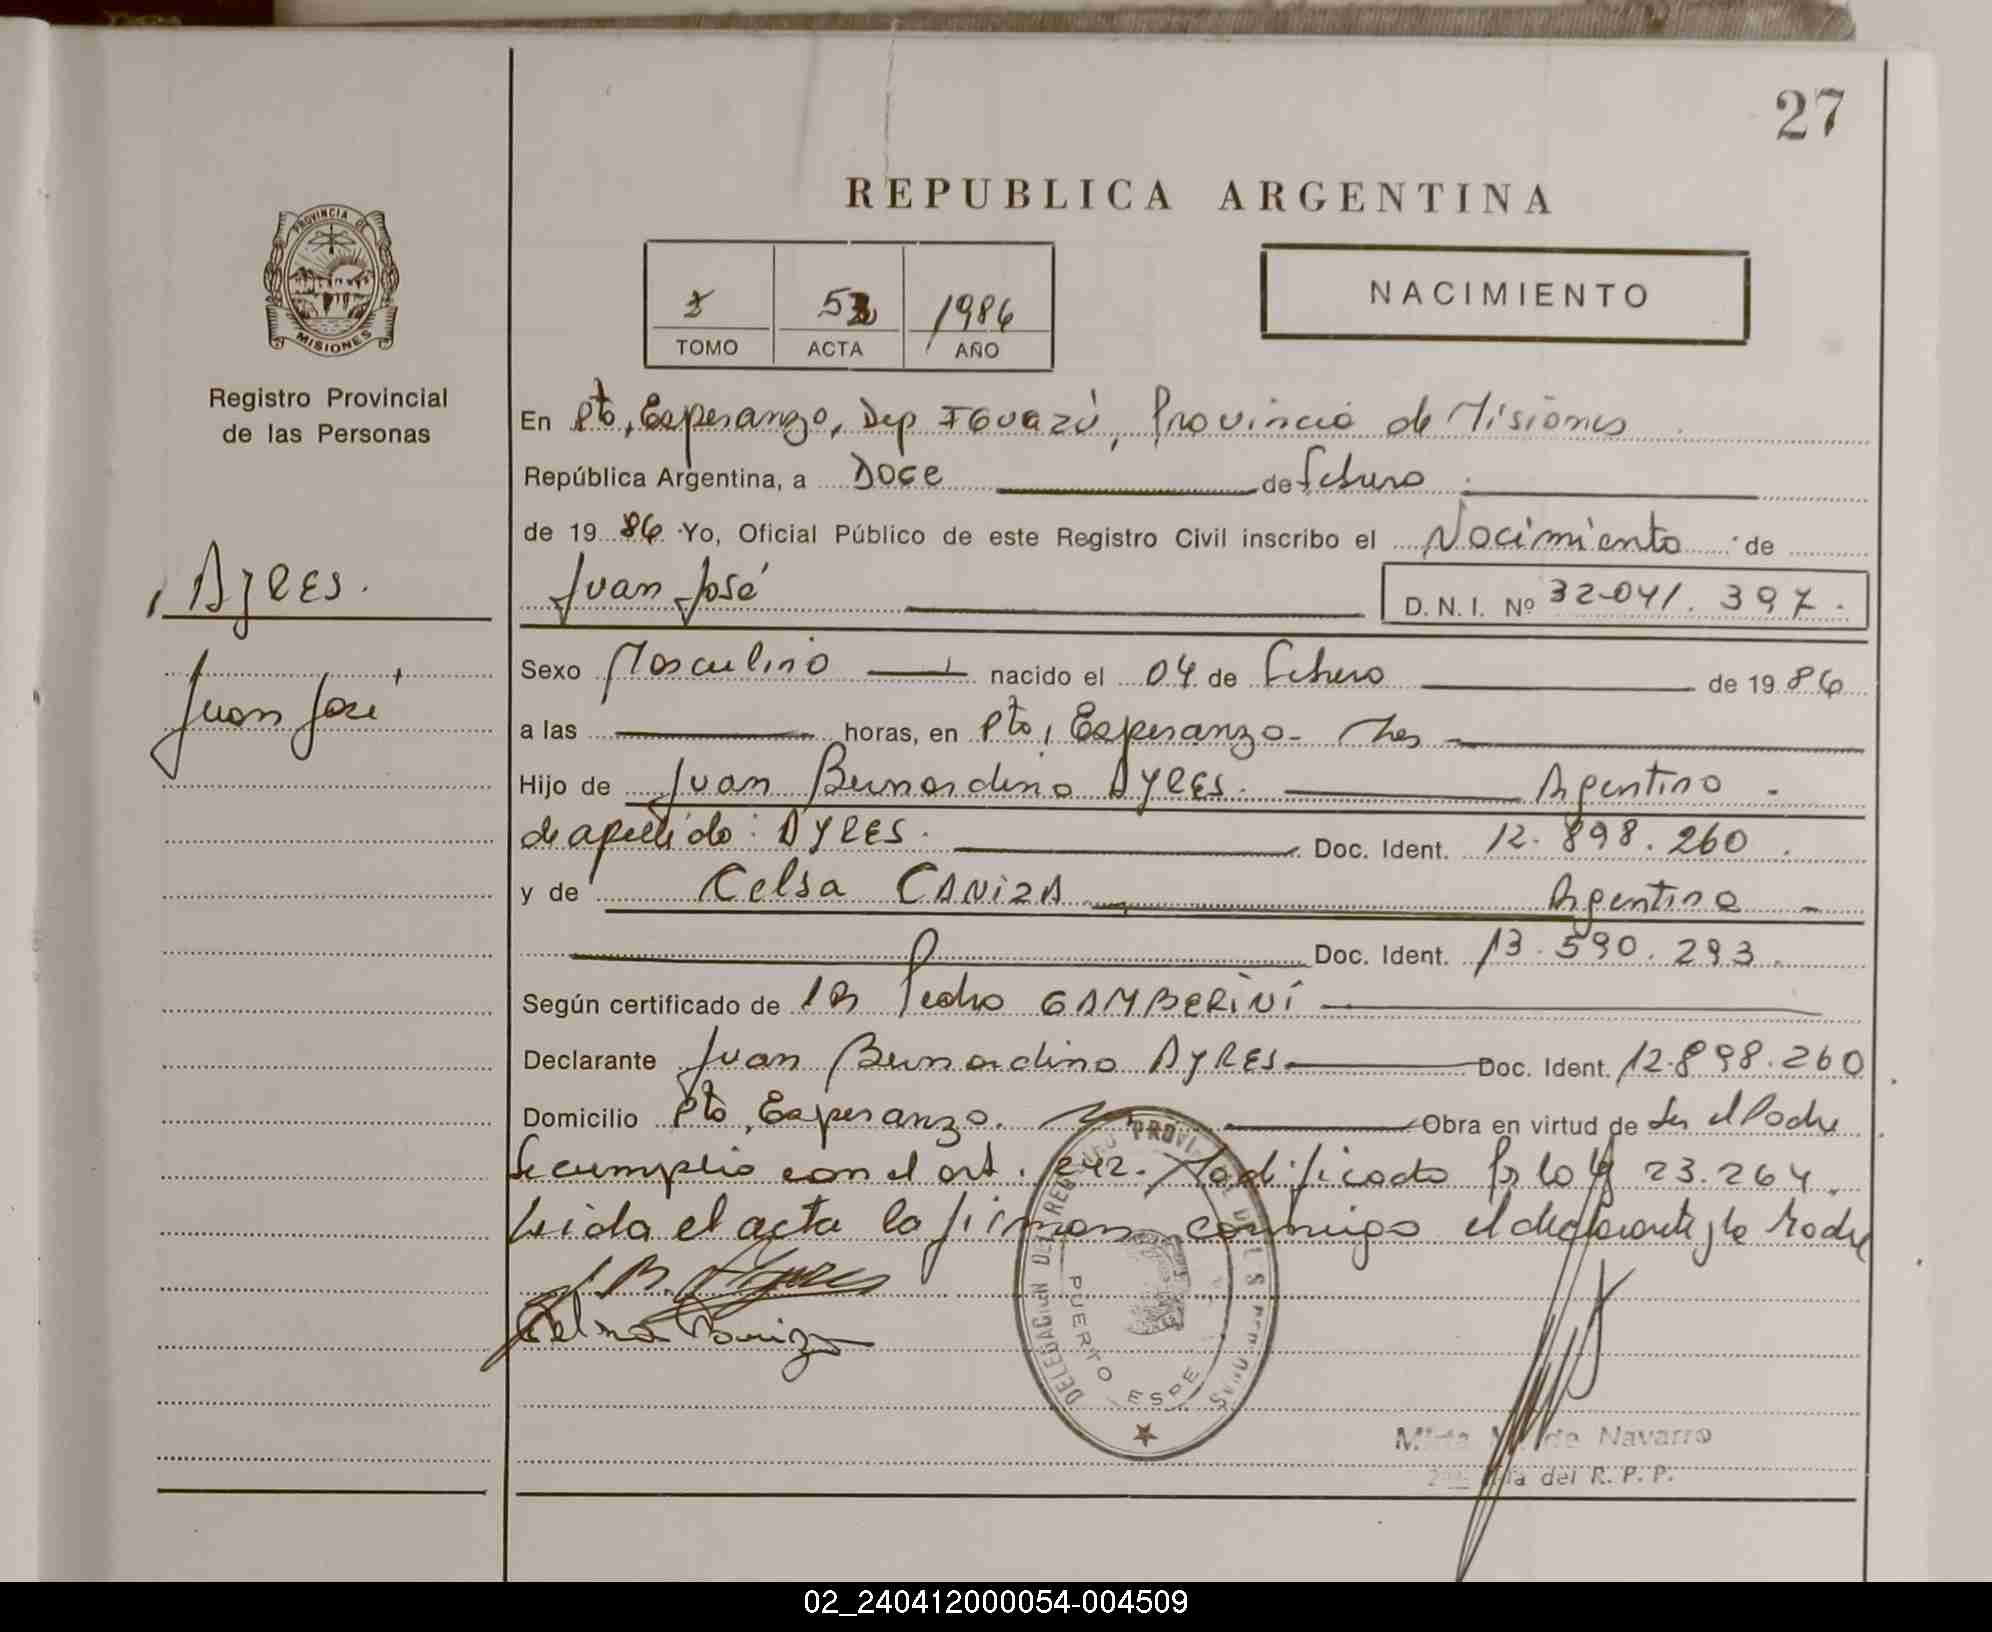 27
REPUBLICA ARGENTINA
1986
TOMO ACTA AÑO
NACIMIENTO
PROVINCIA DE
MISIONES
Registro Provincial
de las Personas
AyRES.
Juan José
En Pto, Esperanza, Dep IGUAZÚ, Provincia de Misiones
República Argentina, a Doce de Febrero
de 19 86 Yo, Oficial Público de este Registro Civil inscribo el Nacimiento de
Juan José D. N. I. Nº 32.041.397.
Sexo Masculino nacido el 04 de Febrero de 19 86
a las horas, en Pto, Esperanza- Mes
Hijo de Juan Bernardino AyRES. Argentino -
de apellido: AyRES. Doc. Ident. 12.898.260.
y de Celsa CANIZA Argentina -
Doc. Ident. 13.590.293.
Según certificado de Pedro GAMBERINI
Declarante Juan Bernardino AyRES Doc. Ident. 12.898.260
Domicilio Pto, Esperanza. Obra en virtud de Ser el Padre
Se cumplio con el art. 242. Modificado por la ley 23.264.
Leida el acta la firman conmigo el declarante y la Madre
J.B. Ayres
Celsa Caniza
DELEGACION DEL REGISTRO PROVINCIAL DE LAS PERSONAS
PUERTO ESPE
Mirta M. de Navarro
del R. P. P.
02_240412000054-004509